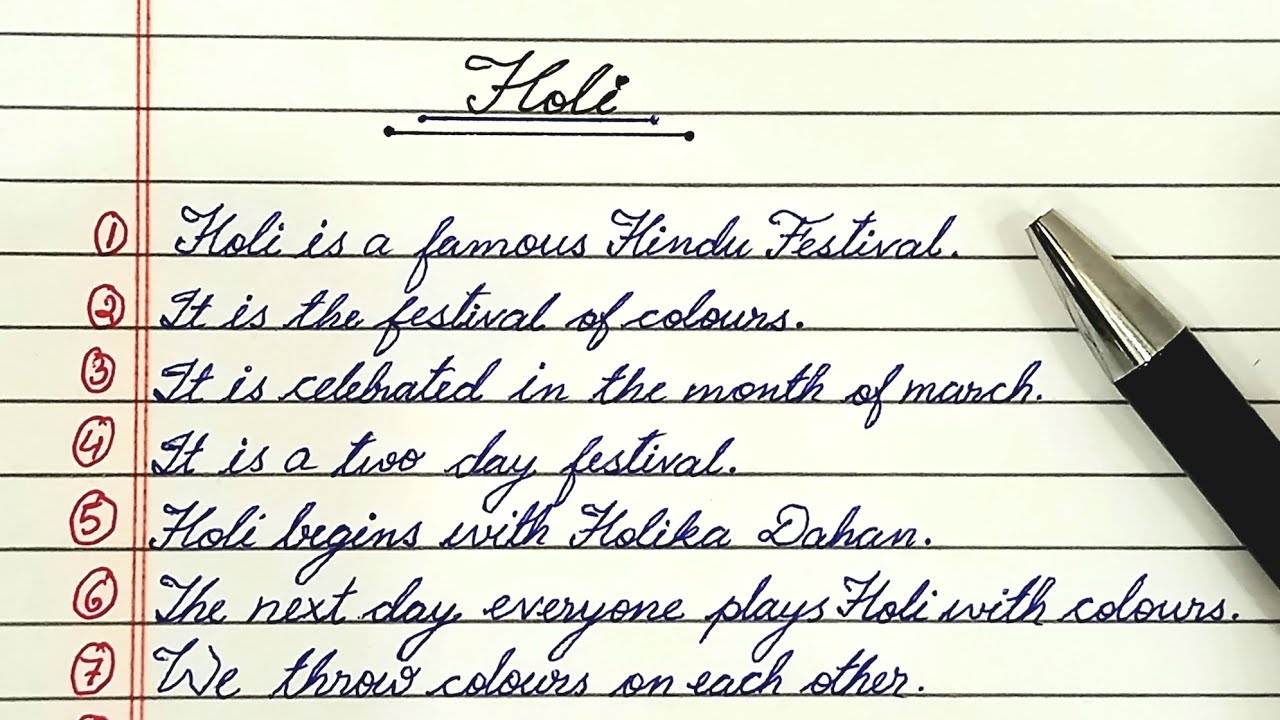 Holi
1 Holi is a famous Hindu Festival.
2 It is the festival of colours.
3 It is celebrated in the month of march.
4 It is a two day festival.
5 Holi begins with Holika Dahan.
6 The next day everyone plays Holi with colours.
7 We throw colours on each other.